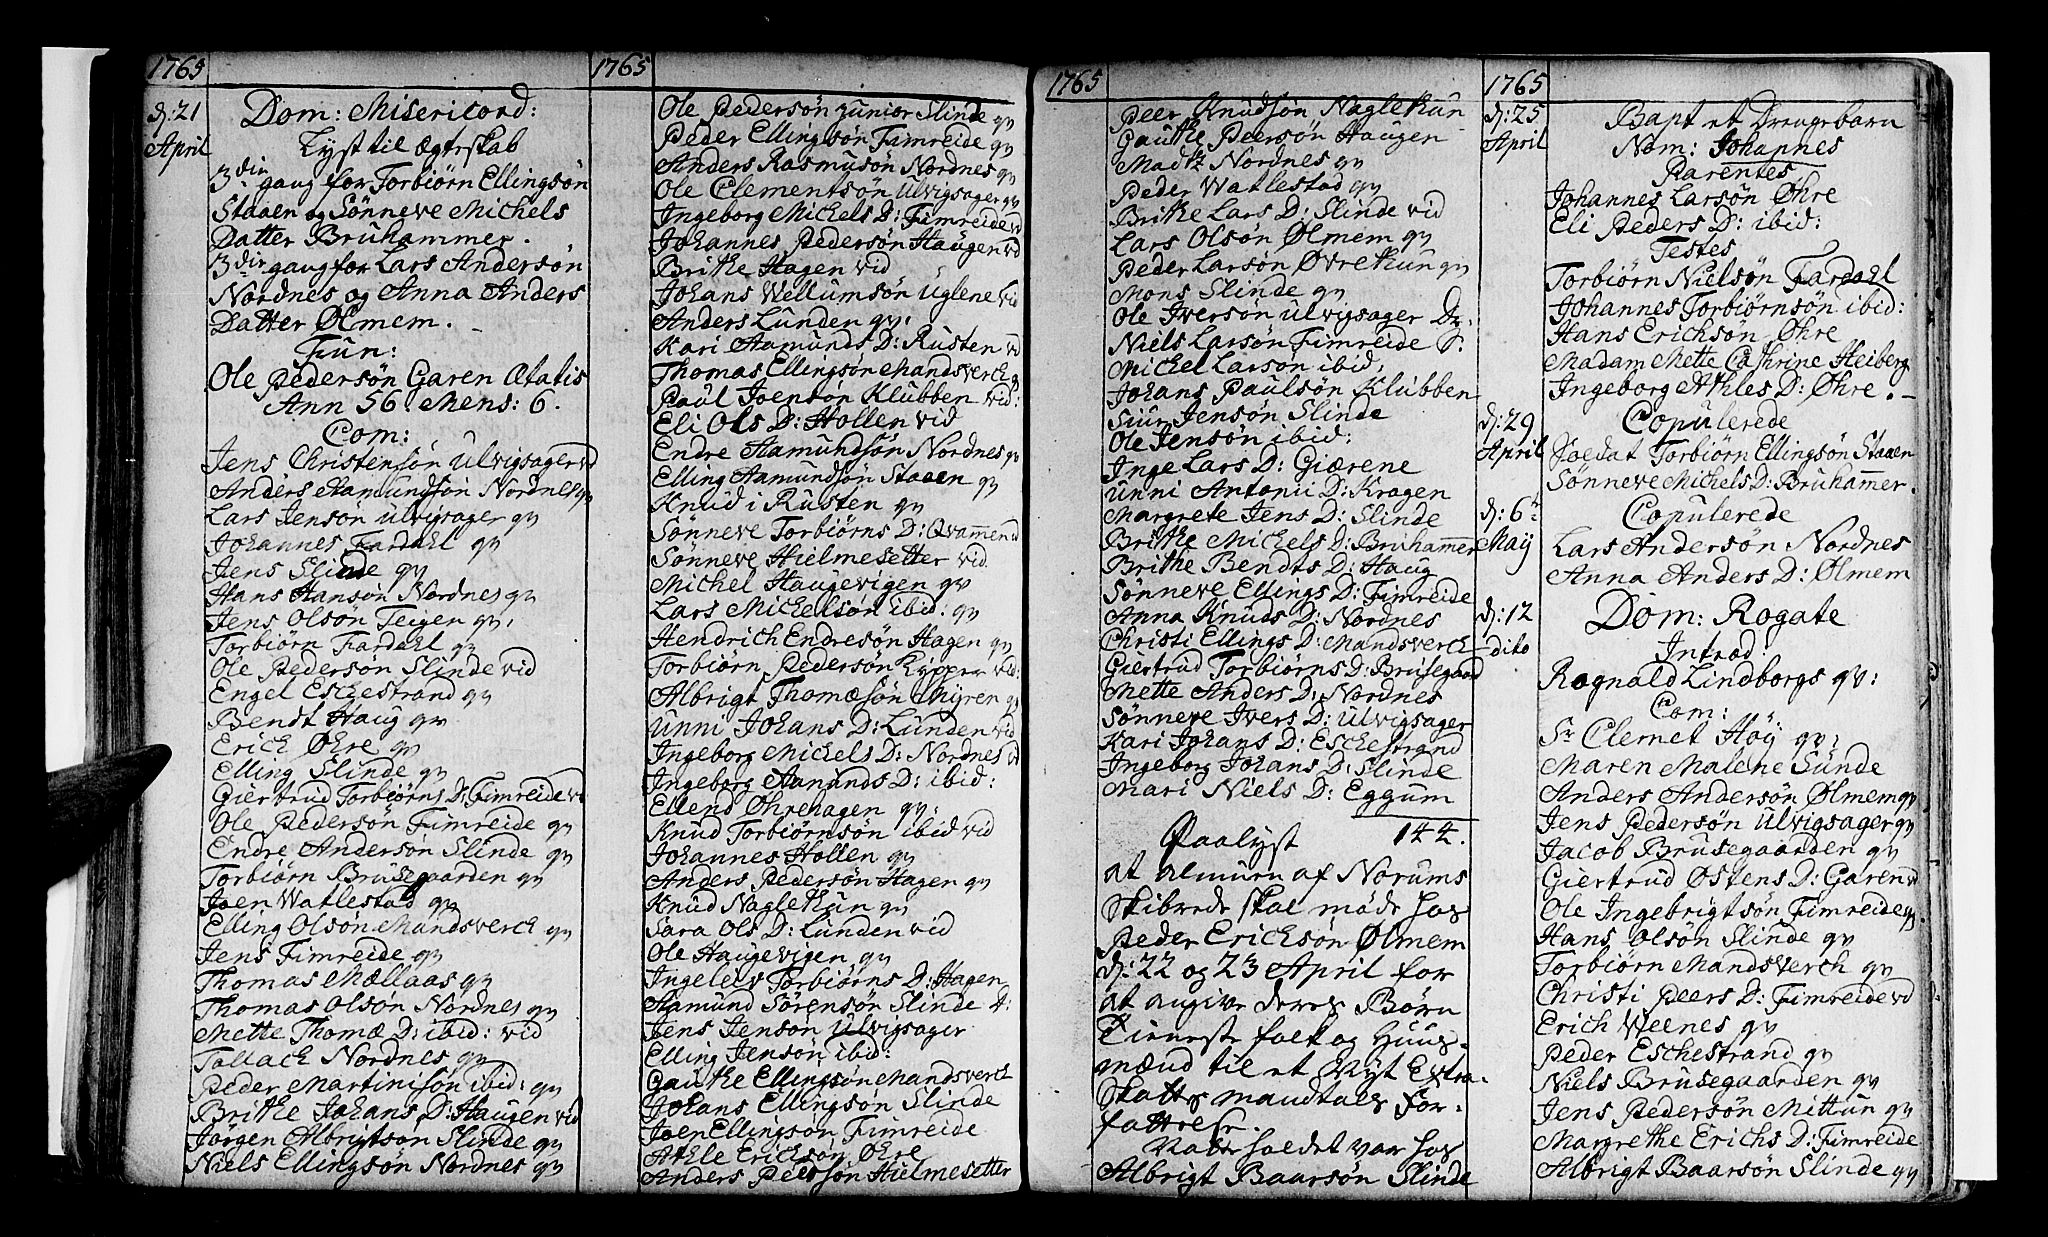 1765
d: 21
April
Dom: Misericord:
Lyst til Ægteskab
3die gang for Torbiørn Ellingsøn
Staaen og Sønneve Michels
Datter Bruhammer.
3die gang for Lars Andersøn
Nordnes og Anna Anders
Datter Ølmem.
Fun:
Ole Pedersøn Garen Ætatis
Ann 56. Mens: 6.
Com:
Jens Christensøn Ulvigsager vd
Anders Aamundsøn Nordnes qv
Lars Jensøn Ulvigsager qv
Johannes Fardahl qv
Jens Slinde qv
Hans Hansøn Nordnes qv
Jens Olsøn Teigen qv,
Torbiørn Fardahl qv
Ole Pedersøn Slinde vid
Engel Eschestrand qv
Bendt Haug qv
Erich Øhre qv
Elling Slinde qv
Giertrud Torbiørns D: Fimreide vd
Ole Pedersøn Fimreide qv
Endre Andersøn Slinde qv
Torbiørn Brusegaarden qv
Joen Watlestad qv
Elling Olsøn Mandsverch qv
Jens Fimreide qv
Thomas Mællaas qv
Thomas Olsøn Nordnes qv
Mette Thomæ D: ibid: vid
Tollach Nordnes qv
Peder Martinisøn ibid: qv
Brithe Johans D: Haugen vid
Jørgen Albrigtsøn Slinde qv
Niels Ellingsøn Nordnes qv
1765
Ole Pedersøn junior Slinde qv
Peder Ellingsøn Fimreide qv
Anders Rasmusøn Nordnes qv
Ole Clementsøn Ulvigsager qv
Ingeborg Michels D: Fimreide vd
Johannes Pedersøn Haugen vd
Brithe Hagen vid
Johans Wellumsøn Uglene vid
Anders Lunden qv,
Kari Aamunds D: Rusten vd
Thomas Ellingsøn Mandsverch qv
Paul Joensøn Klubben vid:
Eli Ols D: Hollen vid
Endre Aamundsøn Nordnes qv
Elling Aamundsøn Staaen qv
Knud i Rusten qv
Sønneve Torbiørns D: Qvammen vd
Sønneve Hielmesetter vid
Michel Haugevigen qv
Lars Michelsøn ibid: qv
Hendrich Endresøn Hagen qv
Torbiørn Pedersøn Kypper vid:
Albrigt Thomæsøn Myren qv
Unni Johans D: Lunden vid
Ingeborg Michels D: Nordnes vd
Ingeborg Aamunds D: ibid:
Ellend Øhrehagen qv:
Knud Torbiørnsøn ibid vid
Johannes Hollen qv
Anders Pedersøn Hagen qv
Knud Naglekun qv
Sara Ols D: Lunden vid
Ole Haugevigen qv
Ingelev Torbiørns D: Hagen
Aamund Sørensøn Slinde d:
Jens Jensøn Ulvigsager
Elling Jensøn ibid:
Gauthe Ellingsøn Mandsverch
Johans Ellingsøn Slinde
Joen Ellingsøn Fimreide
Athle Erichsøn Øhre
Anders Pedersøn Hielmesetter
1765
Peer Knudsøn Naglekun
Gauthe Peersøn Haugen
Madtz Nordnes qv
Peder Watlestad qv
Brithe Lars D: Slinde vid
Lars Olsøn Ølmem qv
Peder Larsøn Øvrekun qv
Mons Slinde qv
Ole Iversøn Ulvigsager Dr:
Niels Larsøn Fimreide S.
Michel Larsøn ibid:
Johans Paulsøn Klubben
Siur Jensøn Slinde
Ole Jensøn ibid:
Inge Lars D: Giærene
Unni Antonii D: Kragen
Margrete Jens D: Slinde
Brithe Michels D: Bruhammer
Brithe Bendts D: Haug
Sønneve Ellings D: Fimreide
Anna Knuds D: Nordnes
Christi Ellings D: Mandsverch
Giertrud Torbiørns D: Brusegaard
Mette Anders D: Nordnes
Sønneve Ivers D: Ulvigsager
Kari Johans D: Eschestrand
Ingeborg Johans D: Slinde
Mari Niels D: Eggum
144.
Paalyst
at almuen af Norums
Skibrede skal møde hos
Peder Erichsøn Ølmem
d: 22 og 23 April for
at angive deres Børn
Tieneste folk og Huus-
mænd til et Nyt Extra-
Skatts mandtals for-
fattelse.
holdet var hos
Albrigt Baarsøn Slinde
1765
d: 25
April
Bapt et Drengebarn
Nom: Johannes
Parentes
Johannes Larsøn Øhre
Eli Peders D: ibid:
Testes
Torbiørn Nielsøn Fardahl
Johannes Torbiørnsøn ibid:
Hans Erichsøn Øhre
Madam Mette Cathrine Heiberg
Ingeborg Athles D: Øhre.
d: 29
April
Copulerede
Soldat Torbiørn Ellingsøn Staaen
Sønneve Michels D: Bruhammer.
d: 6te
Maij
Copulerede
Lars Andersøn Nordnes
Anna Anders D: Ølmem
d: 12
dito
Dom: Rogate
Introd:
Rognald Lindborgs qv:
Com:
Sr Clemet Høij qv:
Maren Malene Sunde
Anders Andersøn Ølmem qv
Jens Pedersøn Ulvigsager qv
Jacob Brusegaarden qv
Giertrud Østens D: Garen vd
Ole Ingebrigtsøn Fimreide qv
Hans Olsøn Slinde qv
Torbiørn Mandsverch qv
Christi Peers D: Fimreide vd
Erich Weenes qv
Peder Eschestrand qv
Niels Brusegaarden qv
Jens Pedersøn Mittun qv
Margrethe Erichs D: Fimreide
Albrigt Baarsøn Slinde qv